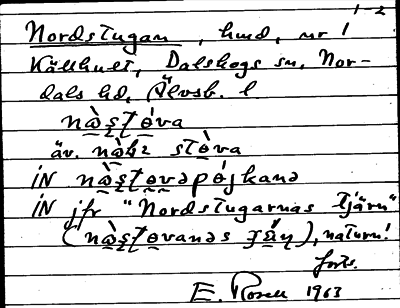 1-2
Nordstugan, hmd, nr 1
Källhult, Dalskogs sn, Nor-
dals hd, Älvsb. l
nɷ̀ʂʈɵ́va
äv. nɷ̀ stɵ̀va
IN nɷ̀ʂʈɵvəpɵ́jkanə
IN jfr "Nordstugarnas tjärn"
(nɷ̀ʂʈɵvanəs), naturn!
forts.
E. Rosell 1963